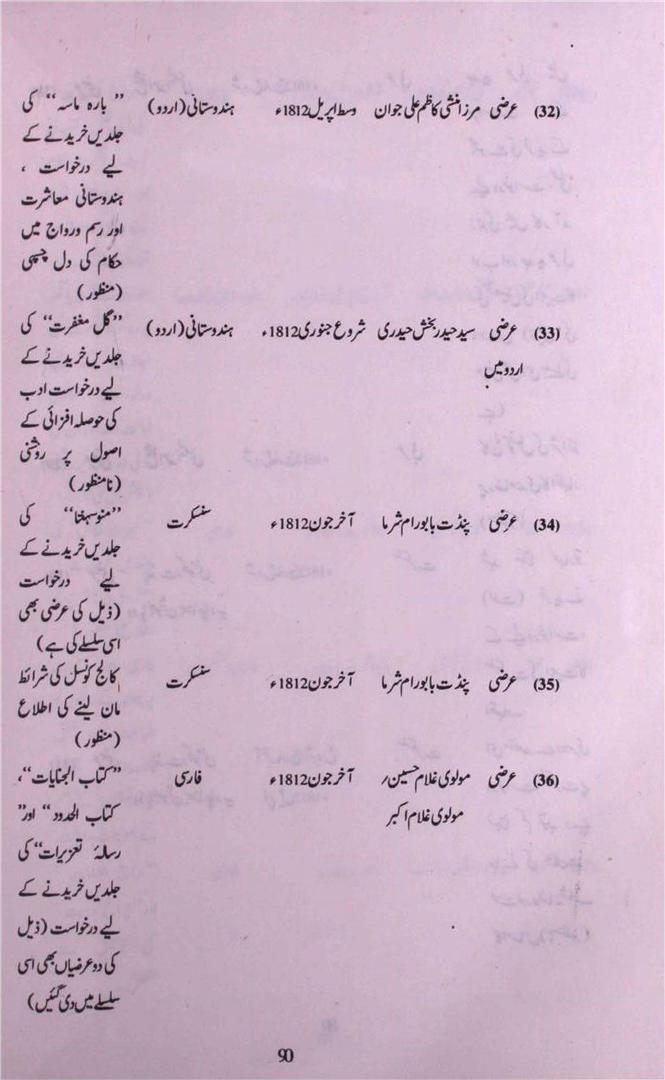 (32) عرضی مرزا منشی کاظم علی جوان وسط اپریل 1812ء ہندوستانی (اردو) ’’بارہ ماسہ‘‘ کی
جلدیں خریدنے کے
لیے درخواست ،
ہندوستانی معاشرت
اور رسم ورواج میں
حکام کی دل چسپی
(منظور)
(33) عرضی سید حیدر بخش حیدری شروع جنوری 1812ء ہندوستانی (اردو) ’’گل مغفرت‘‘ کی
اردو میں جلدیں خریدنے کے
لیے درخواست ادب
کی حوصلہ افزائی کے
اصول پر روشنی
(نامنظور)
(34) عرضی پنڈت بابو رام شرما آخر جون 1812ء سنسکرت ’’منوسمہتا‘‘ کی
جلدیں خریدنے کے
لیے درخواست
(ذیل کی عرضی بھی
اسی سلسلے کی ہے)
(35) عرضی پنڈت بابو رام شرما آخر جون 1812ء سنسکرت کالج کونسل کی شرائط
مان لینے کی اطلاع
(منظور)
(36) عرضی مولوی غلام حسین ر آخر جون 1812ء فارسی ’’کتاب الجنایات‘‘،
مولوی غلام اکبر کتاب الحدود‘‘ اور’’
رسالۂ تعزیرات‘‘ کی
جلدیں خریدنے کے
لیے درخواست (ذیل
کی دو عرضیاں بھی اسی
سلسلے میں دی گئیں)
90